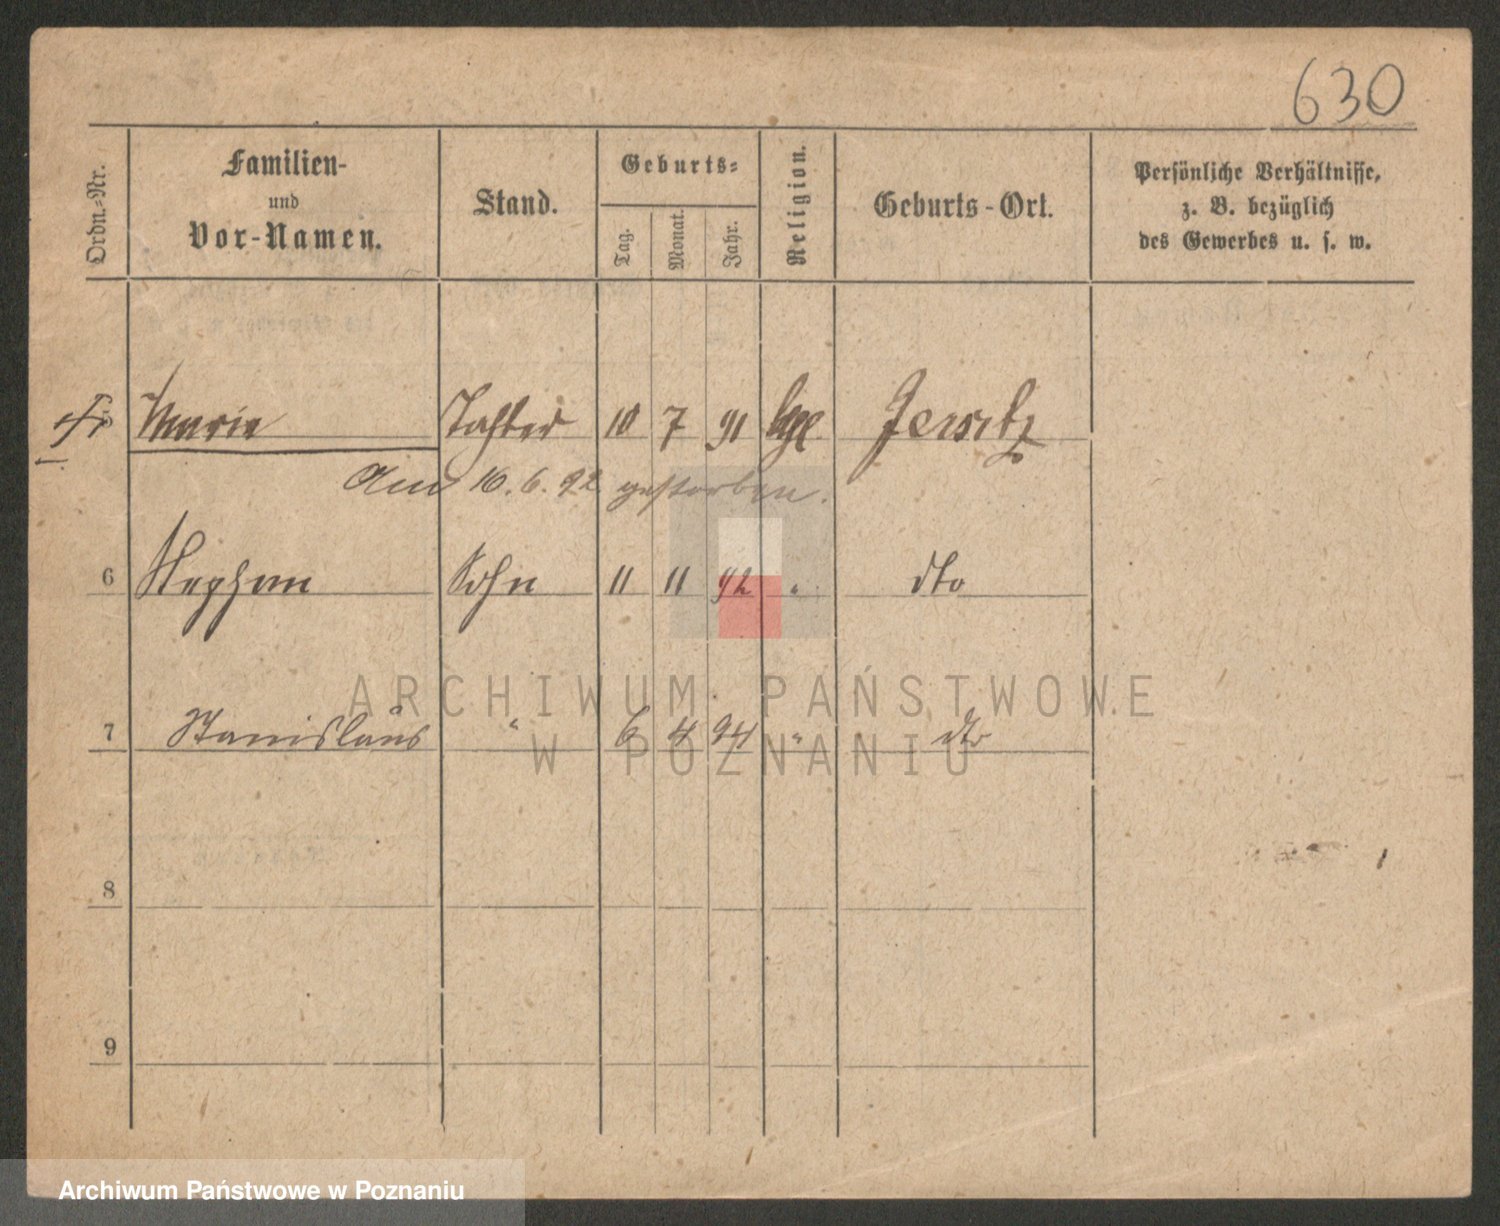 630
Ordn.-Nr.
Familien-
und
Vor-Namen.
Stand.
Geburts-
Tag.
Monat.
Jahr.
Religion.
Geburts-Ort.
Persönliche Verhältnisse,
z. B. bezüglich
des Gewerbes u. s. w.
Marie Tochter 10 7 91 Jersitz
Am 16. 6. 92 gestorben.
6 Stephan Sohn 11 11 92 " dto
7 Stanislaus " 6 4 94 " dto
8
9
ARCHIWUM PAŃSTWOWE
W POZNANIU
Archiwum Państwowe w Poznaniu